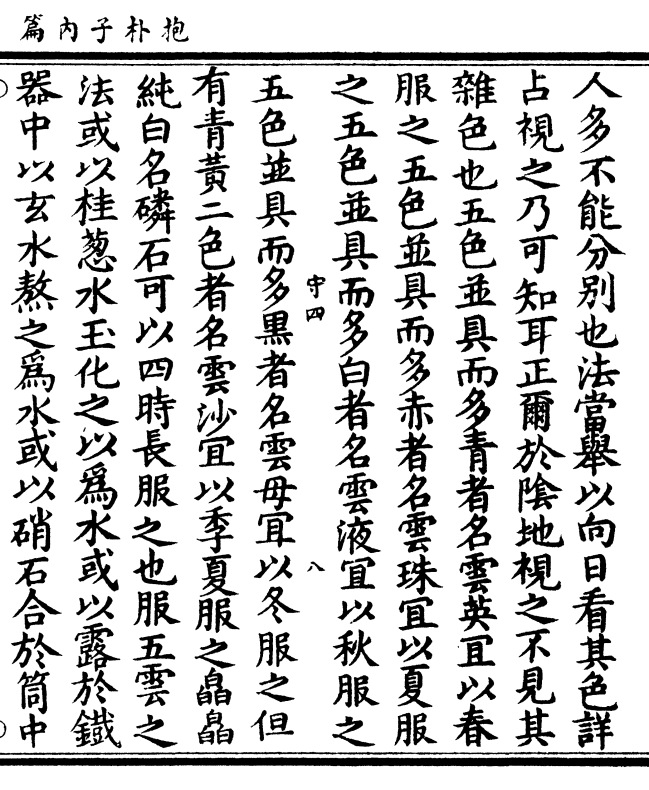 抱朴子內篇
人多不能分別也法當舉以向日看其色詳
占視之乃可知耳正爾於陰地視之不見其
雜色也五色並具而多青者名雲英冝以春
服之五色並具而多赤者名雲珠冝以夏服
之五色並具而多白者名雲液冝以秋服之
守四
八
五色並具而多黒者名雲母冝以冬服之但
有青黃二色者名雲沙冝以季夏服之皛皛
純白名磷石可以四時長服之也服五雲之
法或以桂葱水玉化之以爲水或以露於鐵
器中以玄水熬之爲水或以硝石合於筒中